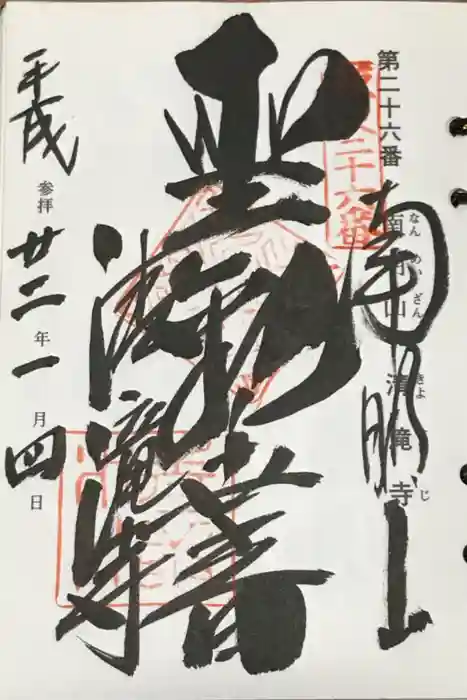 第二十六番
南明山 清滝寺
なん めい ざん きよ じ
南明山
二十六番
聖観音
清滝寺
平成 参拝 廿二年一月四日